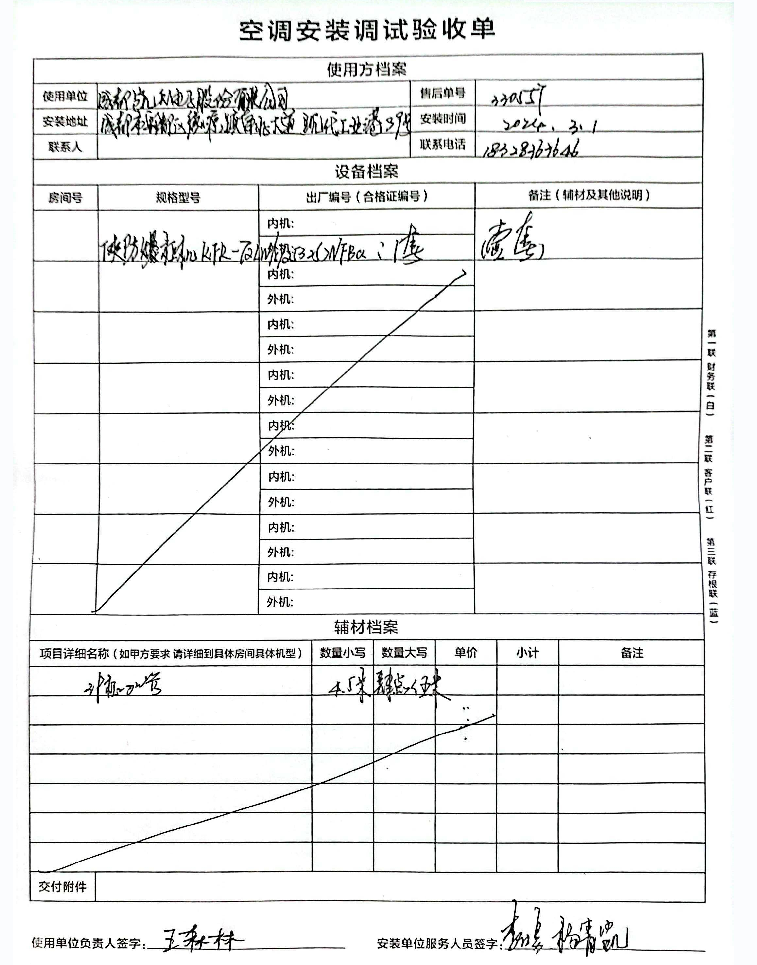 空调安装调试验收单
使用方档案
使用单位 成都凯天电子股份有限公司 售后单号 330557
安装地址 成都市 大道 现代工业港 安装时间 2024.3.1
联系人 联系电话 18328363646
设备档案
房间号 规格型号 出厂编号(合格证编号) 备注(辅材及其他说明)
内机:
防爆 KFR-72LW 1套 壹套
内机:
外机:
内机:
外机:
内机:
外机:
内机:
外机:
内机:
外机:
内机:
外机:
内机:
外机:
辅材档案
项目详细名称(如甲方要求 请详细到具体房间具体机型) 数量小写 数量大写 单价 小计 备注
4.5米 肆点伍米
交付附件
使用单位负责人签字: 王森林 安装单位服务人员签字: 杨青凯
第一联 财务联(白)
第二联 客户联(红)
第三联 存根联(蓝)